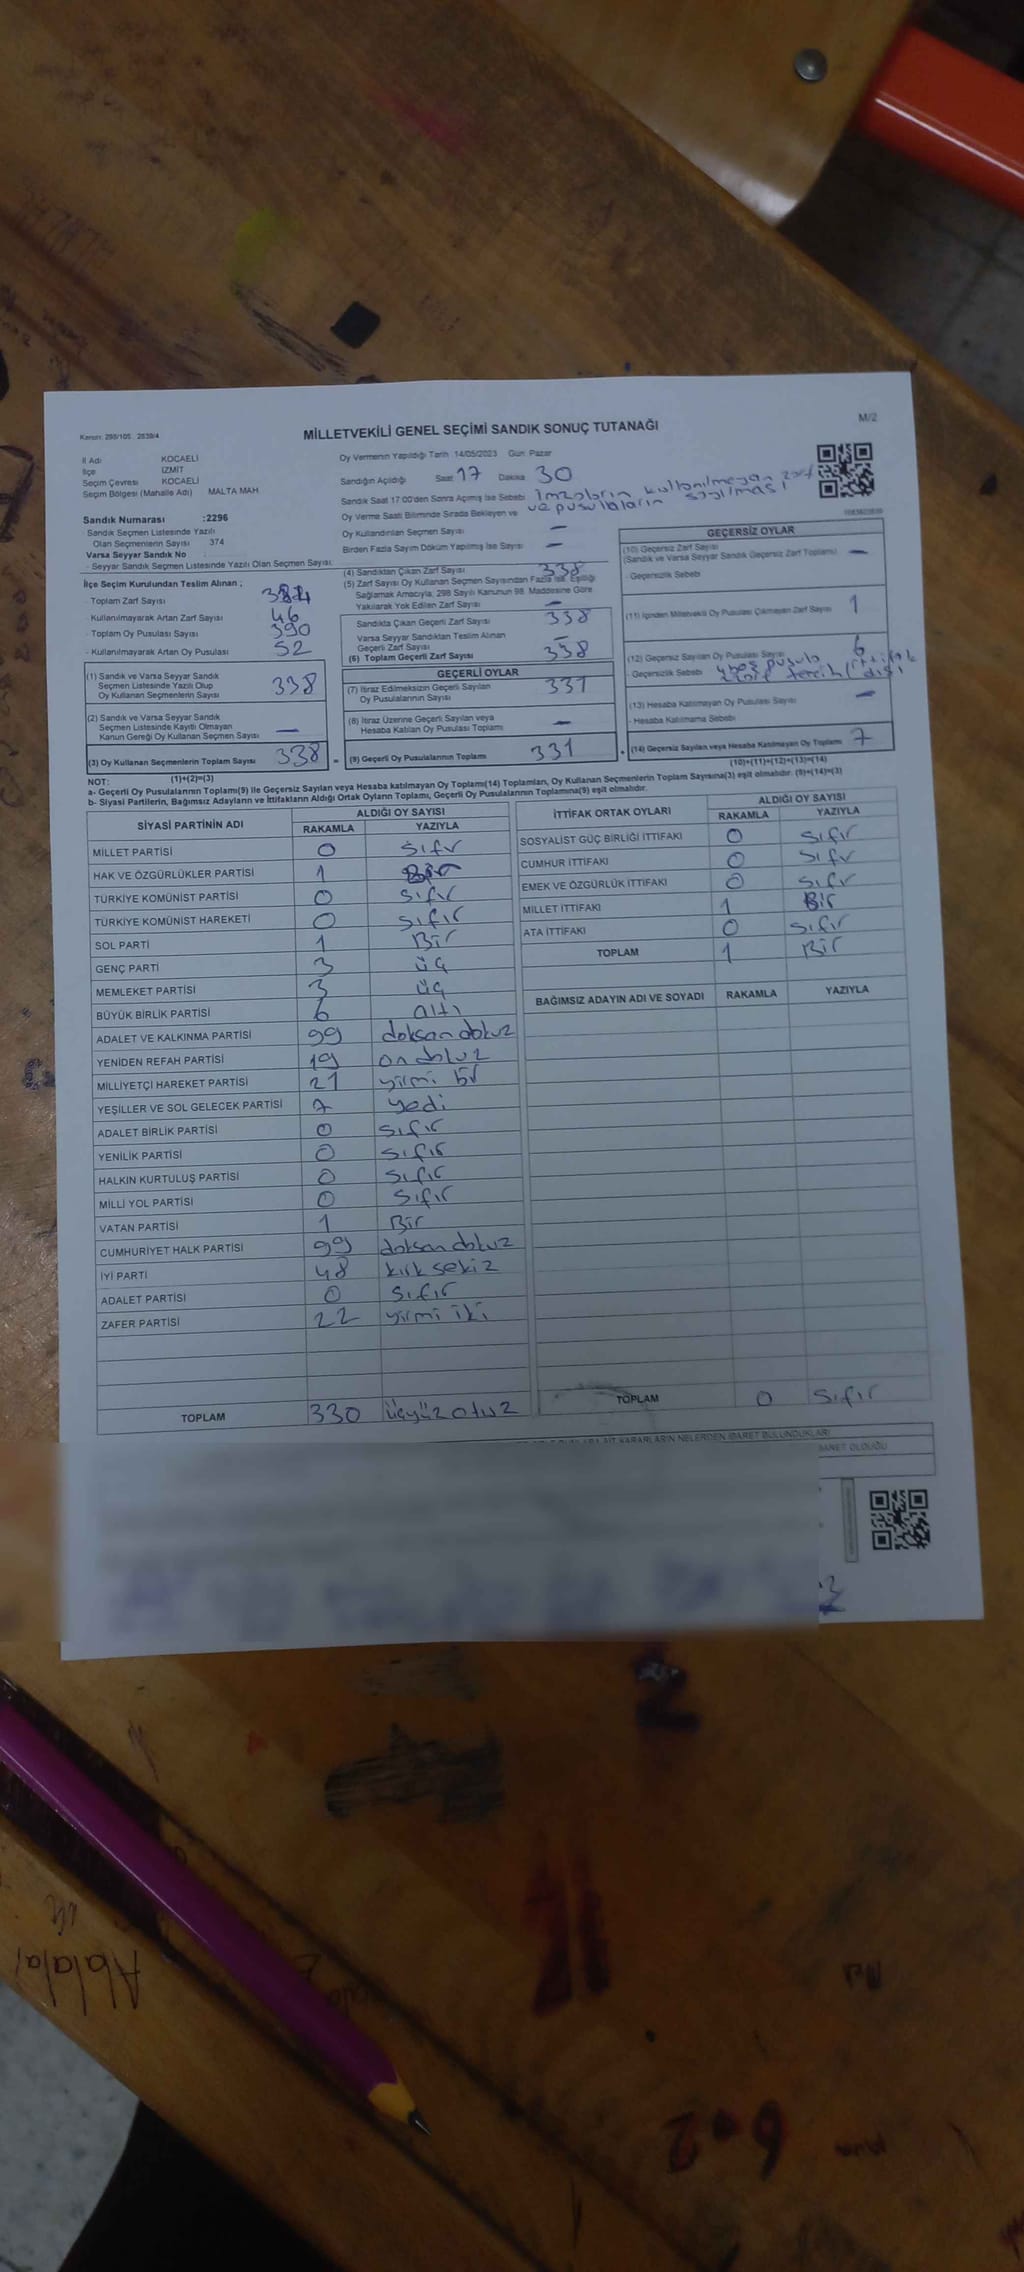 Kanun: 298/105, 2839/4
MİLLETVEKİLİ GENEL SEÇİMİ SANDIK SONUÇ TUTANAĞI
M/2
İl Adı KOCAELİ
İlçe İZMİT
Seçim Çevresi KOCAELİ
Seçim Bölgesi (Mahalle Adı) MALTA MAH
Sandık Numarası :2296
Sandık Seçmen Listesinde Yazılı
Olan Seçmenlerin Sayısı 374
Varsa Seyyar Sandık No
- Seyyar Sandık Seçmen Listesinde Yazılı Olan Seçmen Sayısı:
Oy Vermenin Yapıldığı Tarih 14/05/2023 Gün Pazar
Sandığın Açıldığı Saat 17 Dakika 30
Sandık Saat 17:00'den Sonra Açımış İse Sebebi İmzaların kullanılmayan zarf
ve pusulaların sayılması
Oy Verme Saati Bitiminde Sırada Bekleyen ve
Oy Kullandırılan Seçmen Sayısı –
Birden Fazla Sayım Döküm Yapılmış İse Sayısı –
İlçe Seçim Kurulundan Teslim Alınan ;
- Toplam Zarf Sayısı
- Kullanılmayarak Artan Zarf Sayısı 46
- Toplam Oy Pusulası Sayısı 390
- Kullanılmayarak Artan Oy Pusulası 52
(1) Sandık ve Varsa Seyyar Sandık
Seçmen Listesinde Yazılı Olup
Oy Kullanan Seçmenlerin Sayısı 338
(2) Sandık ve Varsa Seyyar Sandık
Seçmen Listesinde Kayıtlı Olmayan
Kanun Gereği Oy Kullanan Seçmen Sayısı –
(3) Oy Kullanan Seçmenlerin Toplam Sayısı 338 =
(4) Sandıktan Çıkan Zarf Sayısı 338
(5) Zarf Sayısı Oy Kullanan Seçmen Sayısından Fazla İse, Eşitliği
Sağlamak Amacıyla, 298 Sayılı Kanunun 98. Maddesine Göre
Yakılarak Yok Edilen Zarf Sayısı –
Sandıkta Çıkan Geçerli Zarf Sayısı 338
Varsa Seyyar Sandıktan Teslim Alınan
Geçerli Zarf Sayısı –
(6) Toplam Geçerli Zarf Sayısı 338
GEÇERLİ OYLAR
(7) İtiraz Edilmeksizin Geçerli Sayılan
Oy Pusulalarının Sayısı 331
(8) İtiraz Üzerine Geçerli Sayılan veya
Hesaba Katılan Oy Pusulası Toplamı –
(9) Geçerli Oy Pusulalarının Toplamı 331 +
GEÇERSİZ OYLAR
(10) Geçersiz Zarf Sayısı
(Sandık ve Varsa Seyyar Sandık Geçersiz Zarf Toplamı) –
- Geçersizlik Sebebi
(11) İçinden Milletvekili Oy Pusulası Çıkmayan Zarf Sayısı 1
(12) Geçersiz Sayılan Oy Pusulası Sayısı 6
- Geçersizlik Sebebi 4 boş pusula
tercih (ittifak dışı)
(13) Hesaba Katılmayan Oy Pusulası Sayısı –
- Hesaba Katılmama Sebebi
(14) Geçersiz Sayılan veya Hesaba Katılmayan Oy Toplamı 7
(10)+(11)+(12)+(13)=(14)
NOT: (1)+(2)=(3)
a- Geçerli Oy Pusulalarının Toplamı(9) ile Geçersiz Sayılan veya Hesaba katılmayan Oy Toplamı(14) Toplamları, Oy Kullanan Seçmenlerin Toplam Sayısına(3) eşit olmalıdır. (9)+(14)=(3)
b- Siyasi Partilerin, Bağımsız Adayların ve İttifakların Aldığı Ortak Oyların Toplamı, Geçerli Oy Pusulalarının Toplamına(9) eşit olmalıdır.
SİYASİ PARTİNİN ADI ALDIĞI OY SAYISI
RAKAMLA YAZIYLA
MİLLET PARTİSİ 0 sıfır
HAK VE ÖZGÜRLÜKLER PARTİSİ 1 Bir
TÜRKİYE KOMÜNİST PARTİSİ 0 sıfır
TÜRKİYE KOMÜNİST HAREKETİ 0 sıfır
SOL PARTİ 1 Bir
GENÇ PARTİ 3 üç
MEMLEKET PARTİSİ 3 üç
BÜYÜK BİRLİK PARTİSİ 6 altı
ADALET VE KALKINMA PARTİSİ 99 doksan dokuz
YENİDEN REFAH PARTİSİ 19 on dokuz
MİLLİYETÇİ HAREKET PARTİSİ 21 yirmi bir
YEŞİLLER VE SOL GELECEK PARTİSİ 7 yedi
ADALET BİRLİK PARTİSİ 0 sıfır
YENİLİK PARTİSİ 0 sıfır
HALKIN KURTULUŞ PARTİSİ 0 sıfır
MİLLİ YOL PARTİSİ 0 sıfır
VATAN PARTİSİ 1 Bir
CUMHURİYET HALK PARTİSİ 99 doksan dokuz
İYİ PARTİ 48 kırk sekiz
ADALET PARTİSİ 0 sıfır
ZAFER PARTİSİ 22 yirmi iki
TOPLAM 330 üçyüz otuz
İTTİFAK ORTAK OYLARI ALDIĞI OY SAYISI
RAKAMLA YAZIYLA
SOSYALİST GÜÇ BİRLİĞİ İTTİFAKI 0 sıfır
CUMHUR İTTİFAKI 0 sıfır
EMEK VE ÖZGÜRLÜK İTTİFAKI 0 sıfır
MİLLET İTTİFAKI 1 Bir
ATA İTTİFAKI 0 sıfır
TOPLAM 1 Bir
BAĞIMSIZ ADAYIN ADI VE SOYADI RAKAMLA YAZIYLA
TOPLAM 0 sıfır
KARARLARIN NELERDEN İBARET BULUNDUKLARI
İBARET OLDUĞU
Alalala